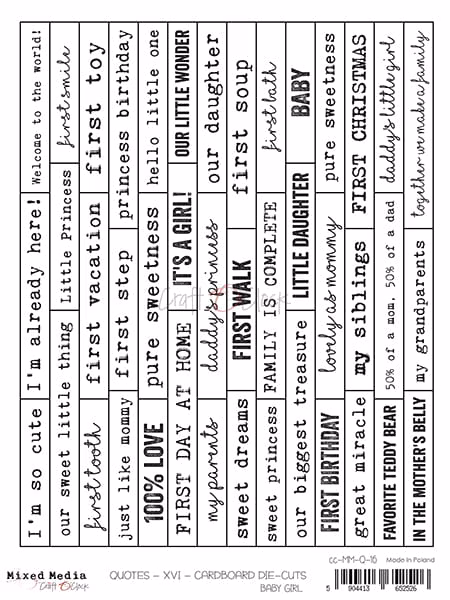 Welcome to the world!
I'm already here!
I'm so cute
first smile
Little Princess
our sweet little thing
first toy
first vacation
first tooth
princess birthday
first step
just like mommy
hello little one
pure sweetness
100% LOVE
OUR LITTLE WONDER
IT'S A GIRL!
FIRST DAY AT HOME
our daughter
daddy's princess
my parents
first soup
FIRST WALK
sweet dreams
first bath
FAMILY IS COMPLETE
sweet princess
BABY
LITTLE DAUGHTER
our biggest treasure
pure sweetness
lovely as mommy
FIRST BIRTHDAY
FIRST CHRISTMAS
my siblings
great miracle
daddy's little girl
50% of a mom, 50% of a dad
FAVORITE TEDDY BEAR
together we make a family
my grandparents
IN THE MOTHER'S BELLY
Craft O'Clock
Mixed Media
Craft O'Clock
QUOTES - XVI - CARDBOARD DIE-CUTS
BABY GIRL
CC-MM-Q-16
Made in Poland
5 904413 652526